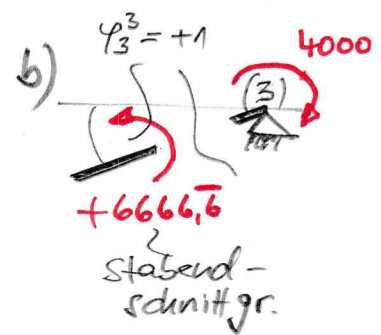 φ₃³ = +1
4000
b)
(3)
+6666,6̅
stabend-
schnittgr.